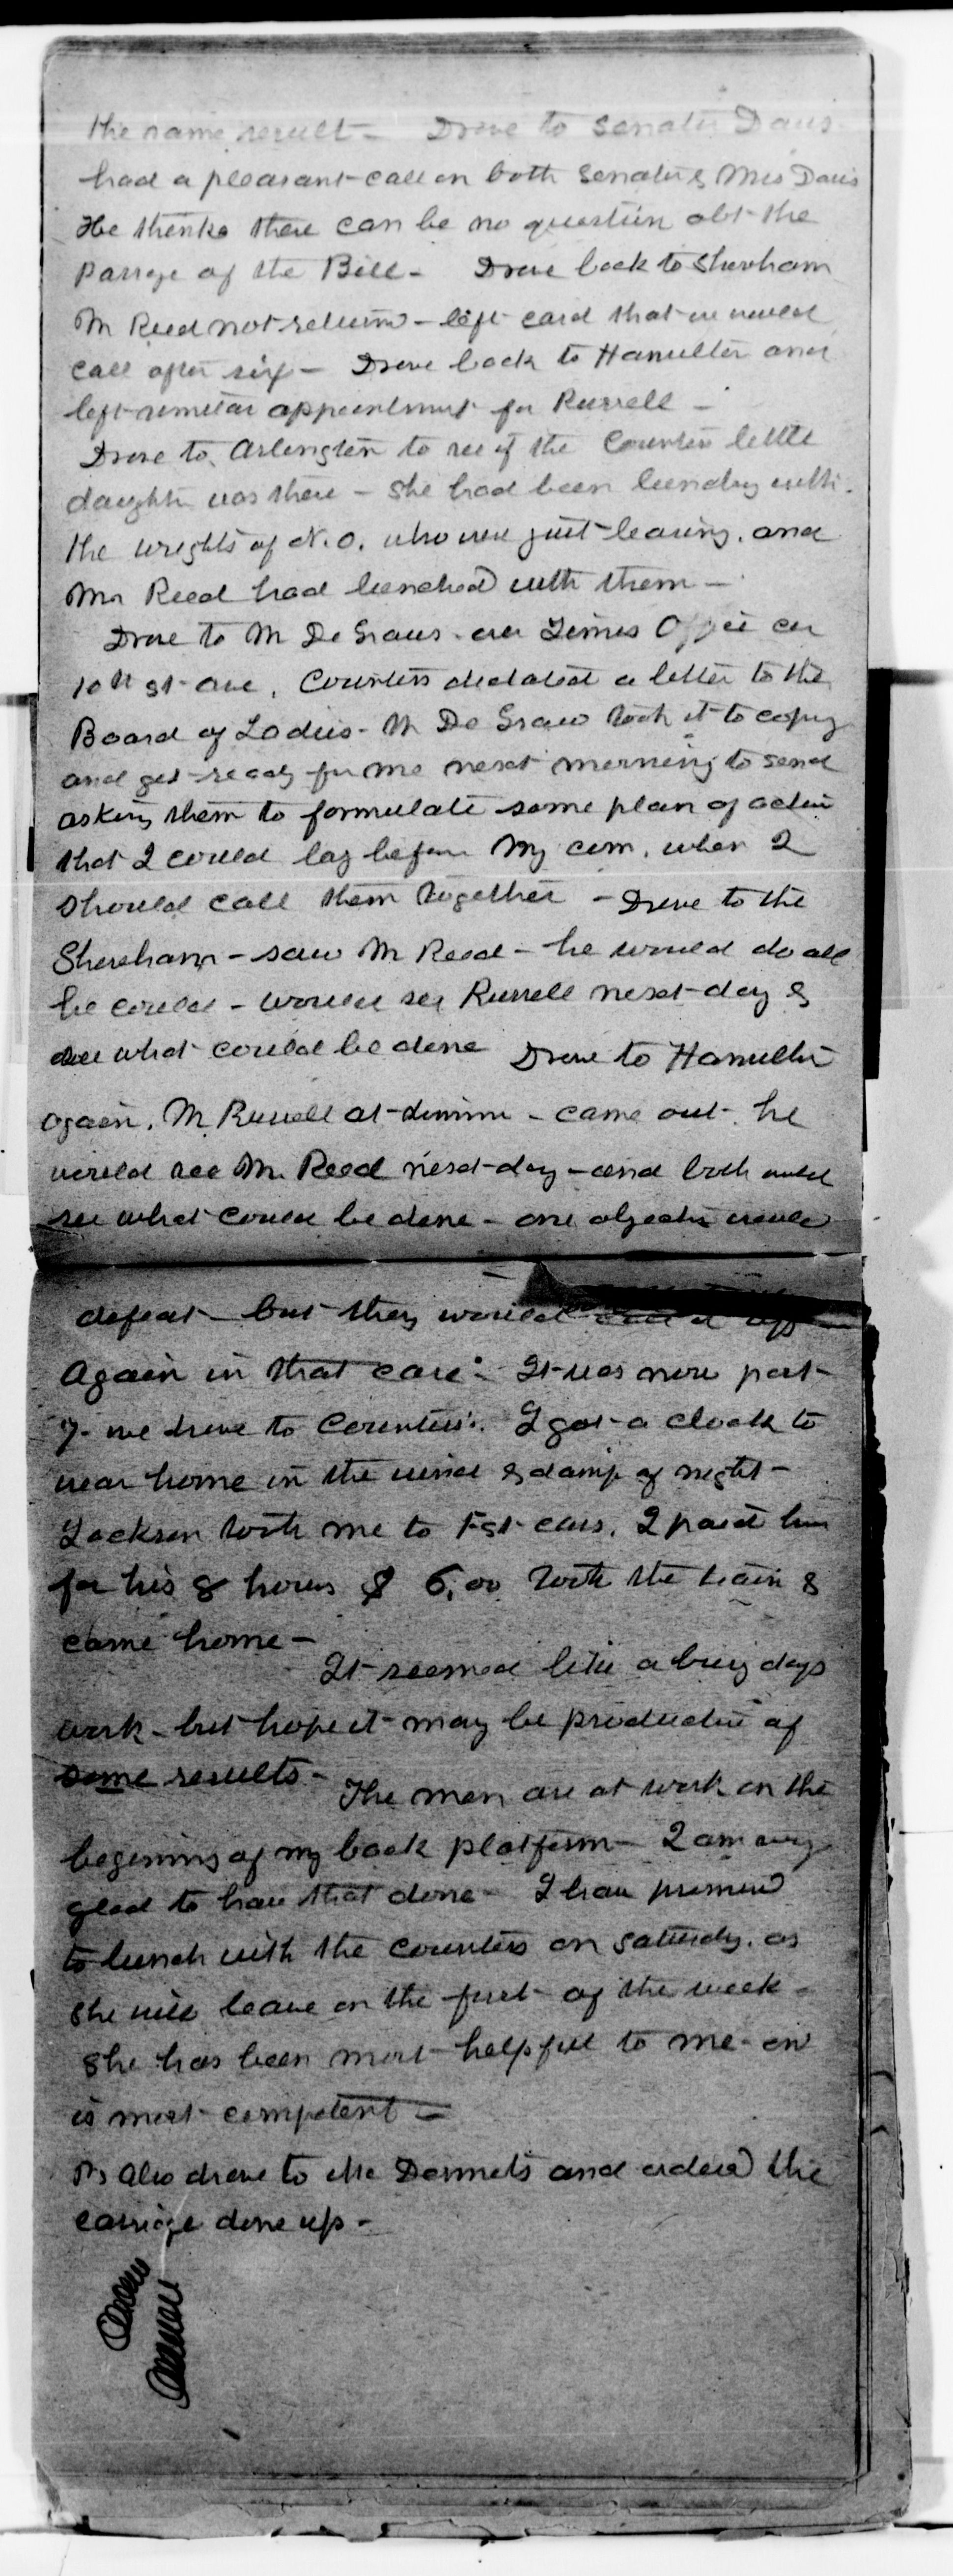 the same result - Drove to Senator Davis
had a pleasant call on both Senator & Mrs Davis
He thinks there can be no question abt the
passage of the Bill - Drove back to Shoreham
Mr Reed not returned - left card that we would
call after six - Drove back to Hamilton and
left similar appointment for Russell -
Drove to Arlington to see if the Countess little
daughter was there - She had been lunching with
the Wrights of N.O. who were just leaving. and
Mr Reed had lunched with them -
Drove to Mr De Graws. over Times Office on
10th st ave. Countess dictated a letter to the
Board of Ladies - Mr De Graw took it to copy
and get ready for me next morning to send
asking them to formulate some plan of action
that I could lay before my com. when I
should call them together - Drove to the
Shoreham - saw Mr Reed - he would do all
he could - would see Russell next day &
see what could be done Drove to Hamilton
again. Mr Russell at dinner - came out - he
would see Mr. Reed next day - and both would
see what could be done - one objection would
defeat - but they would
again in that case. It was now past
7 - we drove to Countess'. I got a cloak to
wear home in the wind & damp of night -
Jackson took me to F St cars. I paid him
for his 8 hours $ 6,00 Took the train &
came home -
It seemed like a busy days
work - but hope it may be productive of
some results -
The men are at work on the
begining of my back platform - I am very
glad to have that done - I have promised
to lunch with the Countess on Saturday. as
she will leave on the first of the week -
She has been most helpful to me
is most competent -
also drove to Mc Dermots and ordered the
carriage done up -